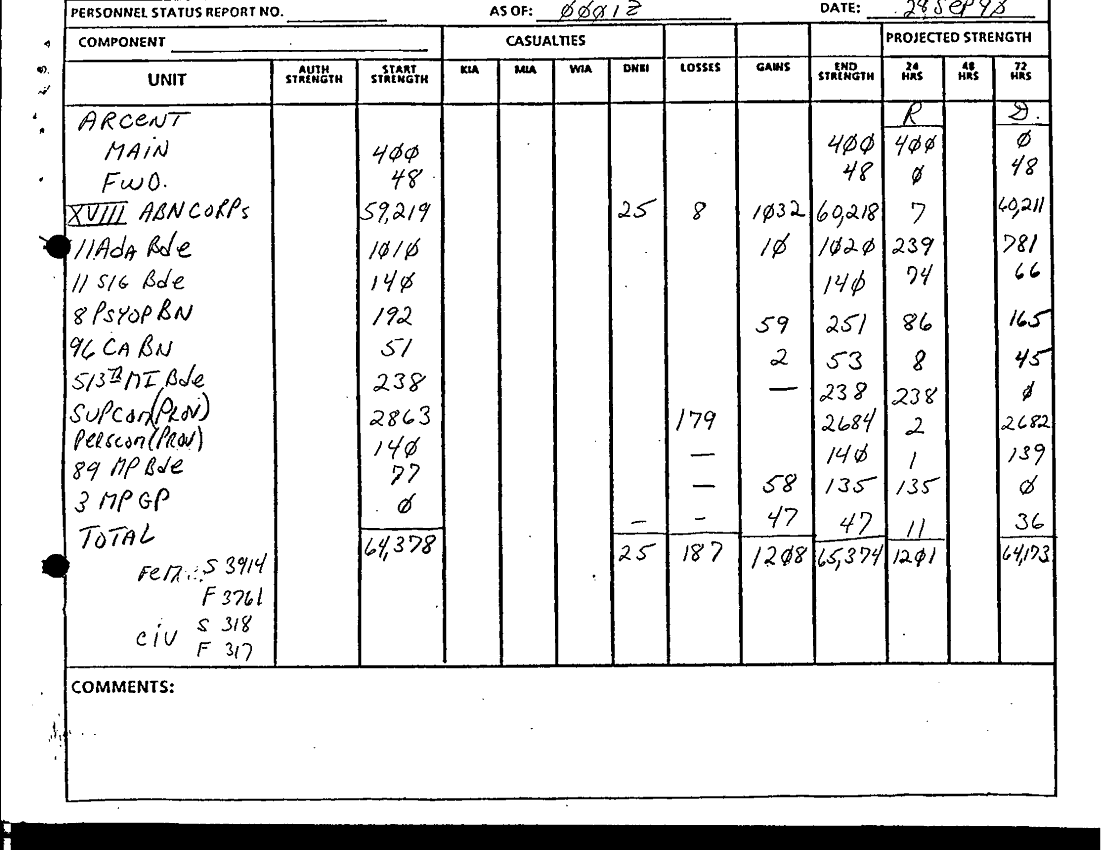 PERSONNEL STATUS REPORT NO. AS OF: ØØØ1Z DATE: 29 SEP 9Ø
COMPONENT CASUALTIES PROJECTED STRENGTH
UNIT AUTH STRENGTH START STRENGTH KIA MIA WIA DNBI LOSSES GAINS END STRENGTH 24 HRS 48 HRS 72 HRS
ARCENT R D.
MAIN 4ØØ 4ØØ 4ØØ Ø
FWD. 48 48 Ø 48
XVIII ABN CORPS 59,219 25 8 1Ø32 60,218 7 60,211
11 ADA Bde 1Ø1Ø 1Ø 1Ø2Ø 239 781
11 SIG Bde 14Ø 14Ø 74 66
8 PSYOP BN 192 59 251 86 165
96 CA BN 51 2 53 8 45
513TH MI Bde 238 — 238 238 Ø
SUPCOM (PROV) 2863 179 2684 2 2682
PERSCOM (PROV) 14Ø — 14Ø 1 139
89 MP Bde 77 — 58 135 135 Ø
3 MP GP Ø — - 47 47 11 36
TOTAL 64,378 25 187 12Ø8 65,374 12Ø1 64,173
Fem S 3914
F 3761
CIV S 318
F 317
COMMENTS: